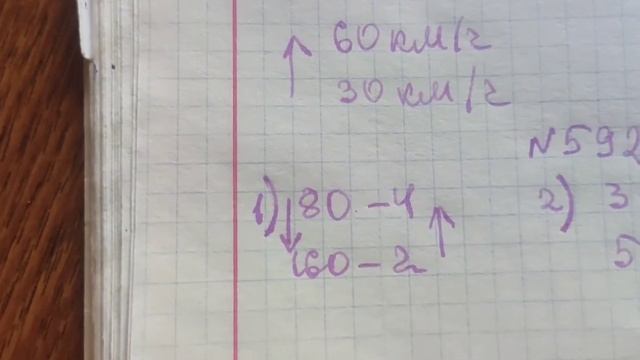 60 км/ч
30 км/ч
N592
1) 80 - 4
2) 3
160 - 2
5